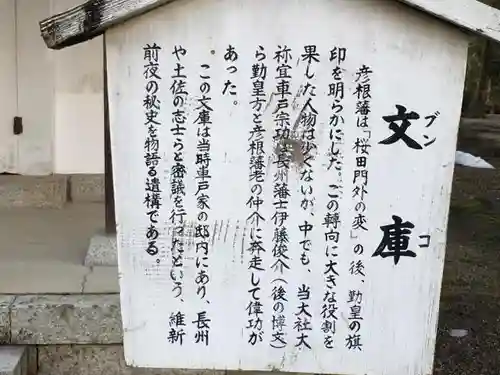 文庫
ブンコ
彦根藩は「桜田門外の変」の後、勤皇の旗
印を明らかにした。この転向に大きな役割を
果した人物は少くないが、中でも、当大社大
祢宜車戸宗功は長州藩士伊藤俊介(後の博文)
ら勤皇方と彦根藩老の仲介に奔走して偉功が
あった。
。この文庫は当時車戸家の邸内にあり、長州
や土佐の志士らと密議を行ったという、維新
前夜の秘史を物語る遺構である。